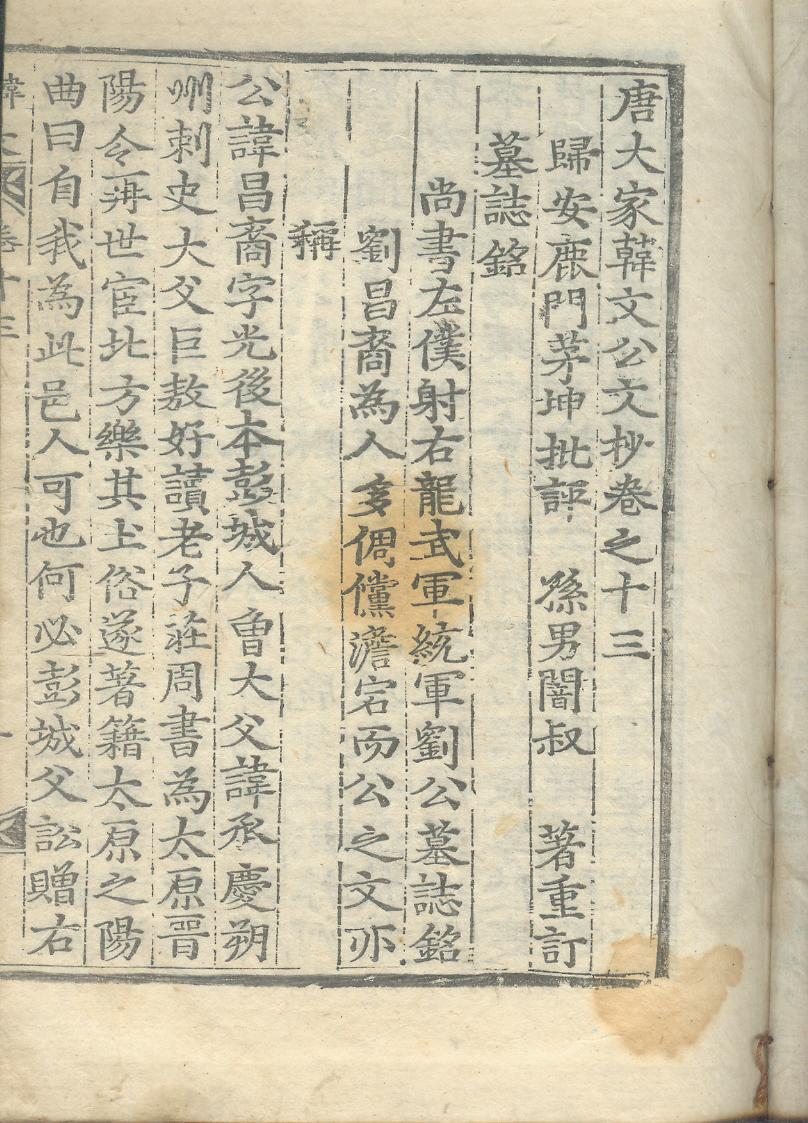 唐大家韓文公文抄卷之十三
歸安鹿門茅坤批評　孫男闇叔　著重訂
墓誌銘
尚書左僕射右龍武軍統軍劉公墓誌銘
劉昌裔為人多倜儻澹宕而公之文亦
稱
公諱昌裔字光後本彭城人曾大父諱承慶朔
州刺史大父巨敖好讀老子莊周書為太原晋
陽令再世宦北方樂其土俗遂著籍太原之陽
曲曰自我為此邑人可也何必彭城父訟贈右
卷十三